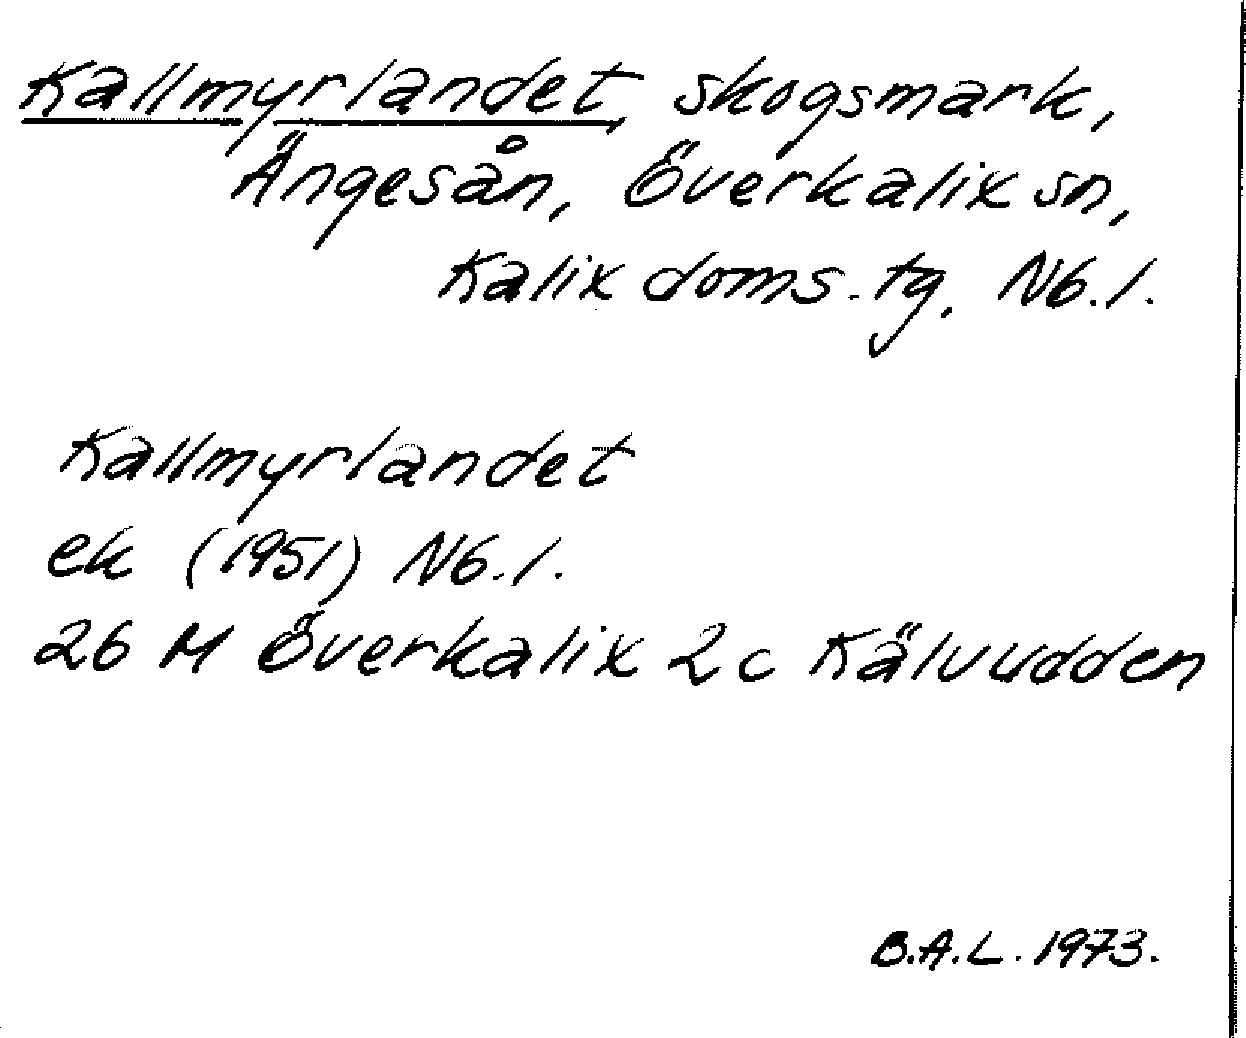 Kallmyrlandet, skogsmark,
Ängesån, Överkalix sn,
Kalix doms. tg, Nb.l.
Kallmyrlandet
ek (1951) Nb.l.
26 M Överkalix 2c Kälvudden
B.A.L. 1973.